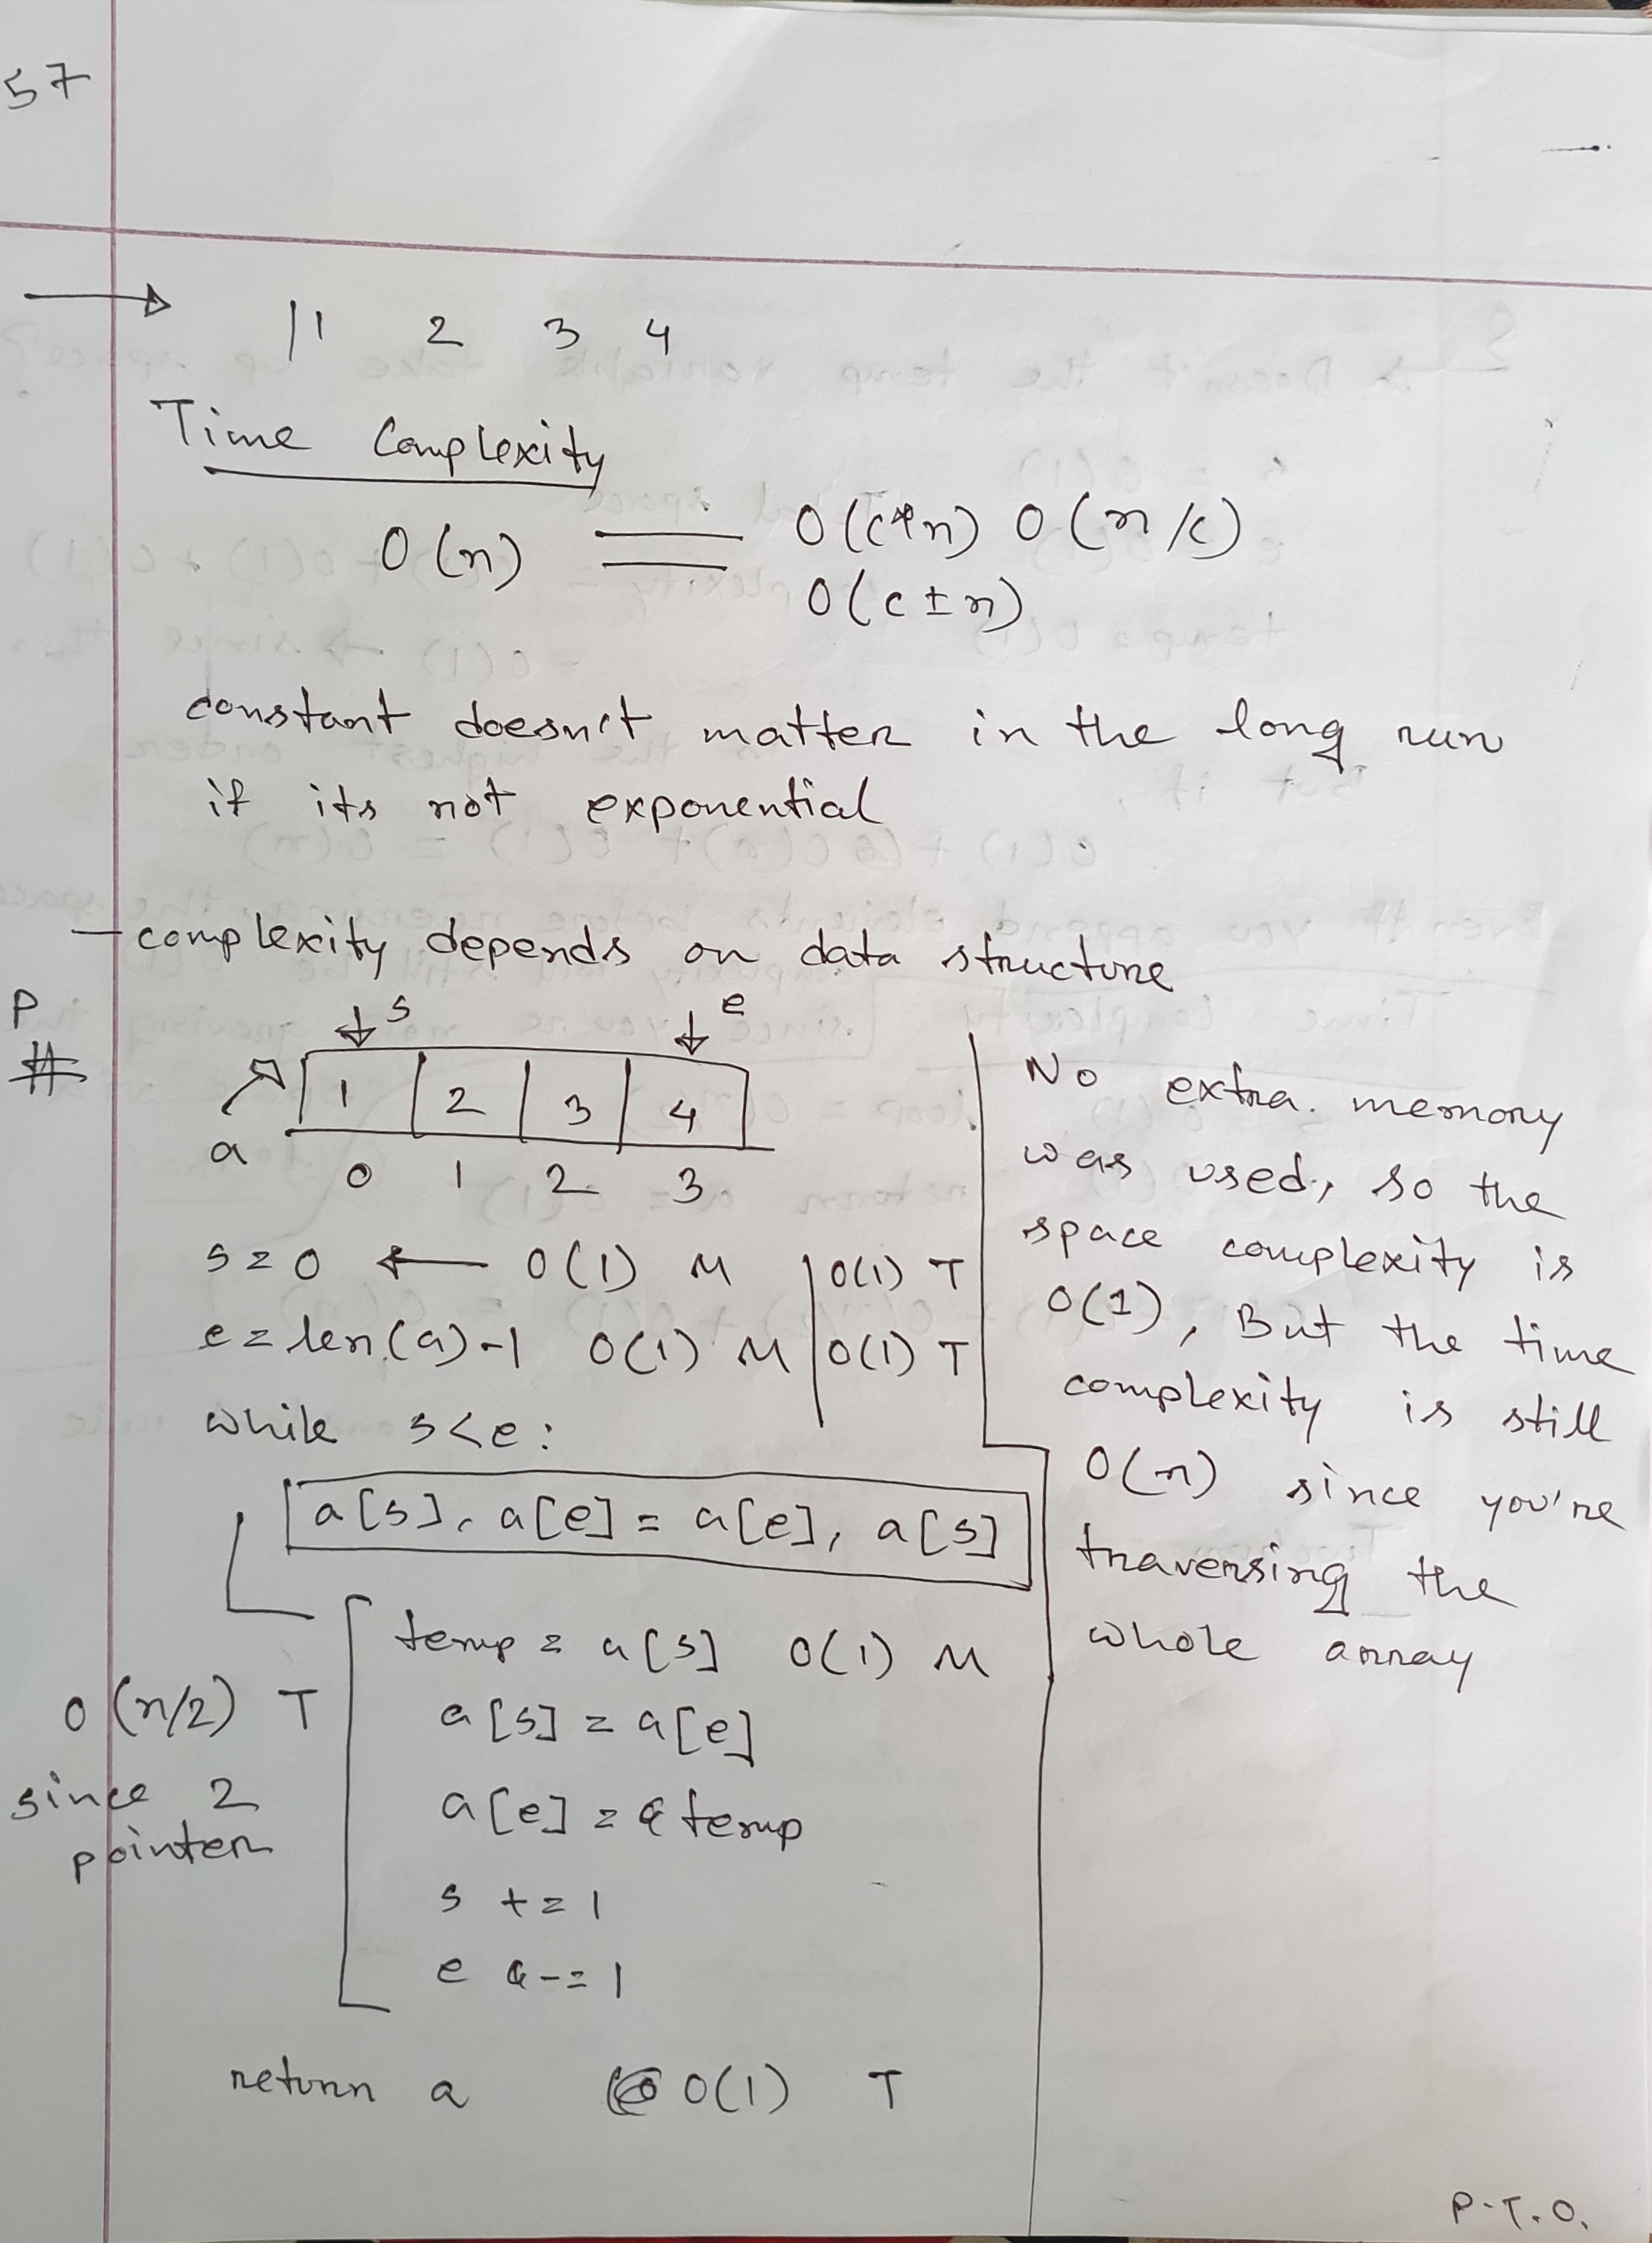 57
1 2 3 4
Time Complexity
O(n) = O(c*n) O(n/c)
O(c±n)
constant doesn't matter in the long run
if its not exponential
- complexity depends on data structure
P
#
s e
1 2 3 4
a
0 1 2 3
s = 0 ← O(1) M | O(1) T
e = len(a)-1 O(1) M | O(1) T
while s<e:
a[s], a[e] = a[e], a[s]
temp = a[s] O(1) M
a[s] = a[e]
a[e] = temp
s += 1
e -= 1
O(n/2) T
since 2
pointer
return a O(1) T
No extra memory
was used, so the
space complexity is
O(1), But the time
complexity is still
O(n) since you're
traversing the
whole array
P.T.O.